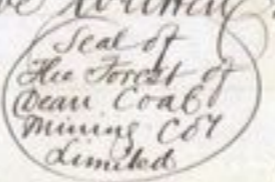 written
Seal of
The Forest of
Dean Coal
Mining Coy
Limited